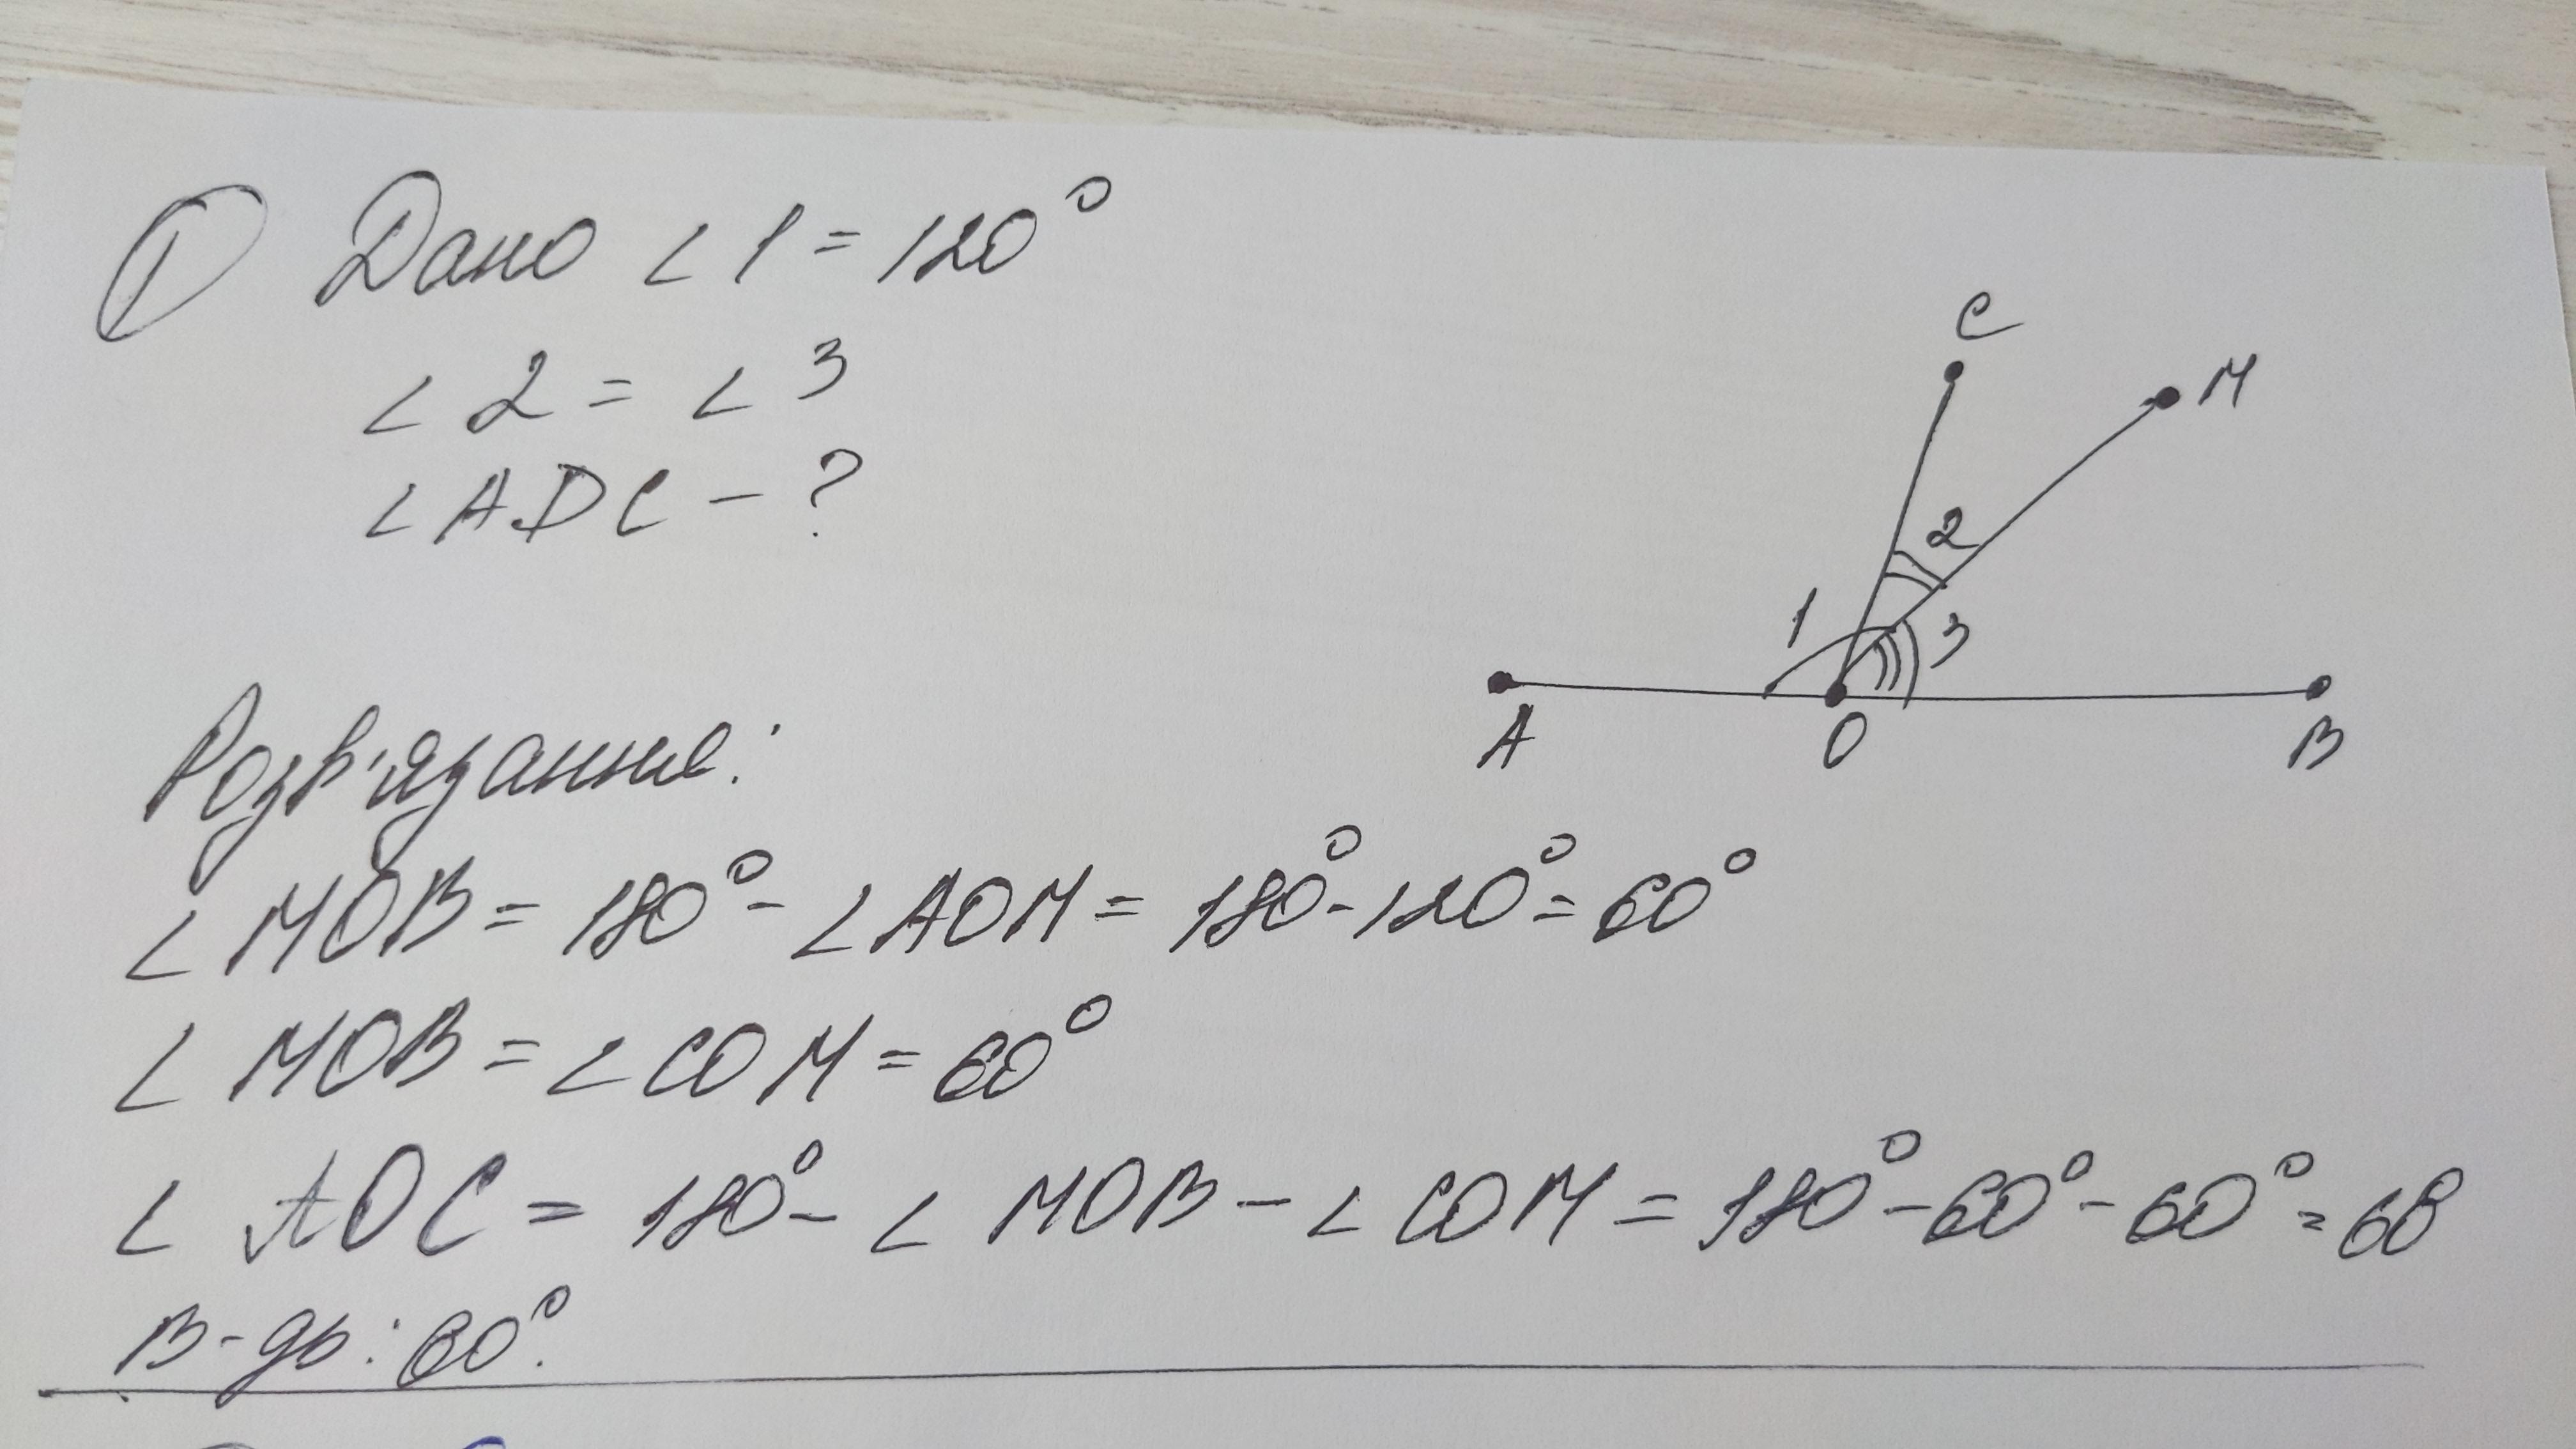 ① Дано ∠1 = 120°
∠2 = ∠3
∠ADC - ?
C
M
2
1
3
A
O
B
Розв'язання:
∠MOB = 180° - ∠AOM = 180° - 120° = 60°
∠MOB = ∠COM = 60°
∠AOC = 180° - ∠MOB - ∠COM = 180° - 60° - 60° = 60
В-дь: 60°.